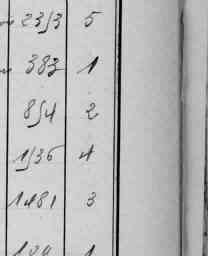 2353 5
383 1
854 2
1536 4
1481 3
1